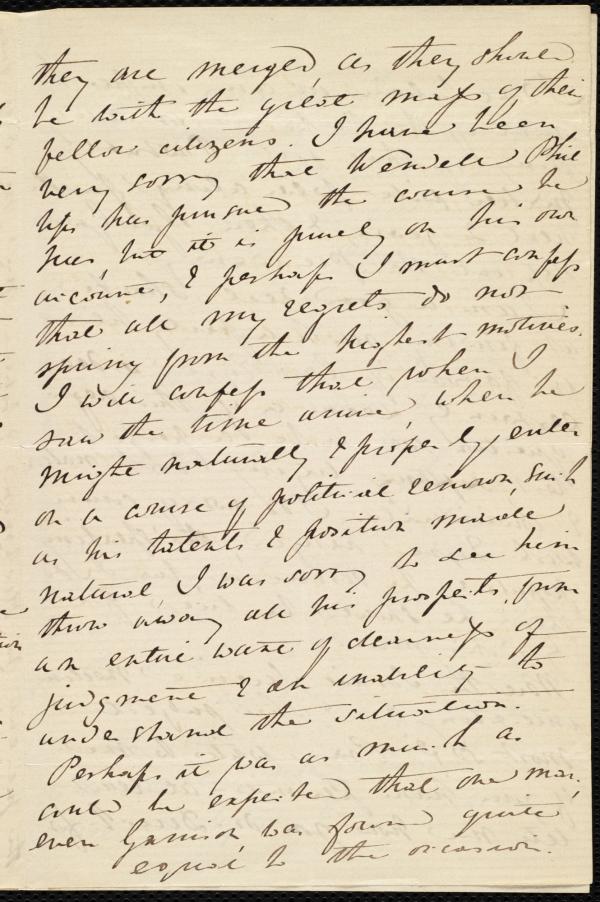 they are merged, as they should
be with the great mass of their
fellow citizens. I have been
very sorry that Wendell Phil
lips has pursued the course he
has, but it is purely on his own
account, & perhaps I must confess
that all my regrets do not
spring from the highest motives.
I will confess that, when I
saw the time arrive, when he
might naturally & properly enter
on a course of political renown, such
as his talents & position made
natural, I was sorry to see him
throw away all his prospects, from
an entire want of clearness of
judgment & an inability to
understand the situation.
Perhaps it was as much as
could be expected that one man,
even Garrison, was found quite
equal to the occasion.